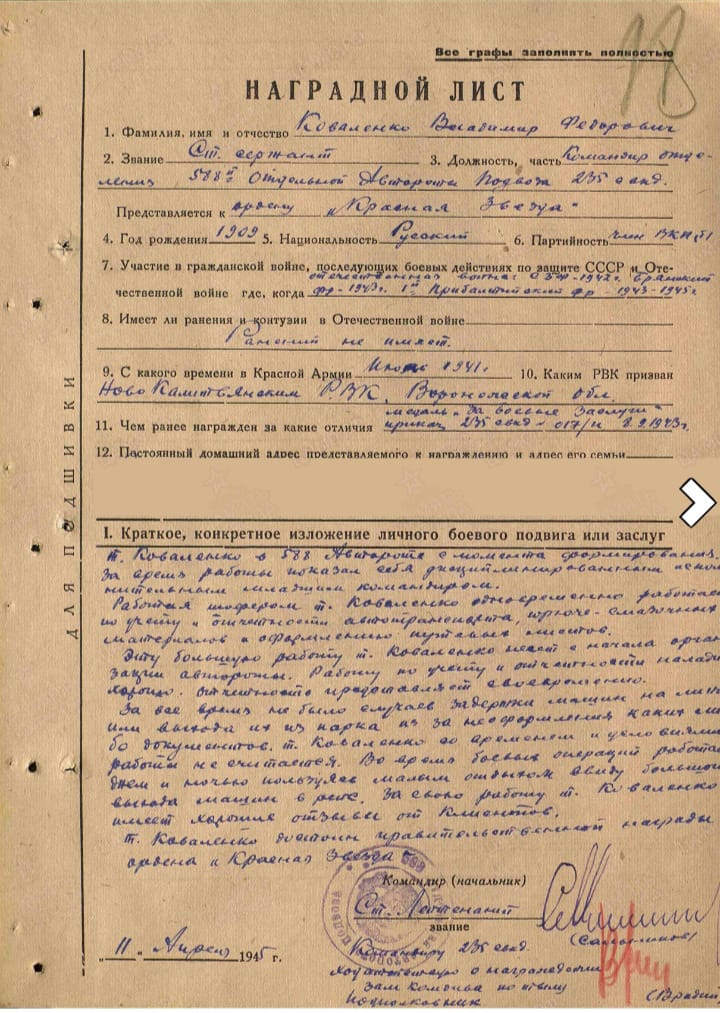 Все графы заполнять полностью
НАГРАДНОЙ ЛИСТ
1. Фамилия, имя и отчество Коваленко Владимир Федорович
2. Звание Ст. сержант 3. Должность, часть Командир отде-
ления 588й Отдельной Автороты Подвоза 235 сткд.
Представляется к ордену „Красная Звезда"
4. Год рождения 1909 5. Национальность Русский 6. Партийность член ВКП(б)
7. Участие в гражданской войне, последующих боевых действиях по защите СССР и Оте-
отечественная война: 1942г. Брянский
чественной войне где, когда фр-1943г. 1й Прибалтийский фр-1943-1945г
8. Имеет ли ранения и контузии в Отечественной войне
Ранений не имеет.
9. С какого времени в Красной Армии 1941г 10. Каким РВК призван
Ново Калитвянским РВК, Воронежской обл.
медаль „За боевые заслуги"
11. Чем ранее награжден за какие отличия приказ 235 017/н 8.9.1943г.
12. Постоянный домашний адрес представляемого к награждению и адрес его семьи
ДЛЯ ПОДШИВКИ
I. Краткое, конкретное изложение личного боевого подвига или заслуг
т. Коваленко в 588 Автороте с момента формирования.
За время работы показал себя дисциплинированным испол
нительным младшим командиром.
Работая шофером т. Коваленко одновременно работает
по учету и отчетности автотранспорта, горюче-смазочных
материалов и оформлению путевых листов.
Эту большую работу т. Коваленко несет с начала орган
зации автороты. Работу по учету и отчетности наладил
хорошо. отчетность представляет своевременно.
За все время не было случаев задержки машин на
или выхода их из парка из за неоформления каких ли
бо документов. т. Коваленко со временем и условиями
работы не считается. Во время боевых операций работал
днем и ночью пользуясь малым отдыхом ввиду большого
выхода машин в рейс. За свою работу т. Коваленко
имеет хорошие отзывы от клиентов.
т. Коваленко достоин правительственной награды
ордена „Красная Звезда"
Командир (начальник)
Ст. Лейтенант
звание
„11" Апреля 1945 г.
Командиру 235 сткд.
ходатайствую о награждении
зам комдива по тылу
подполковник